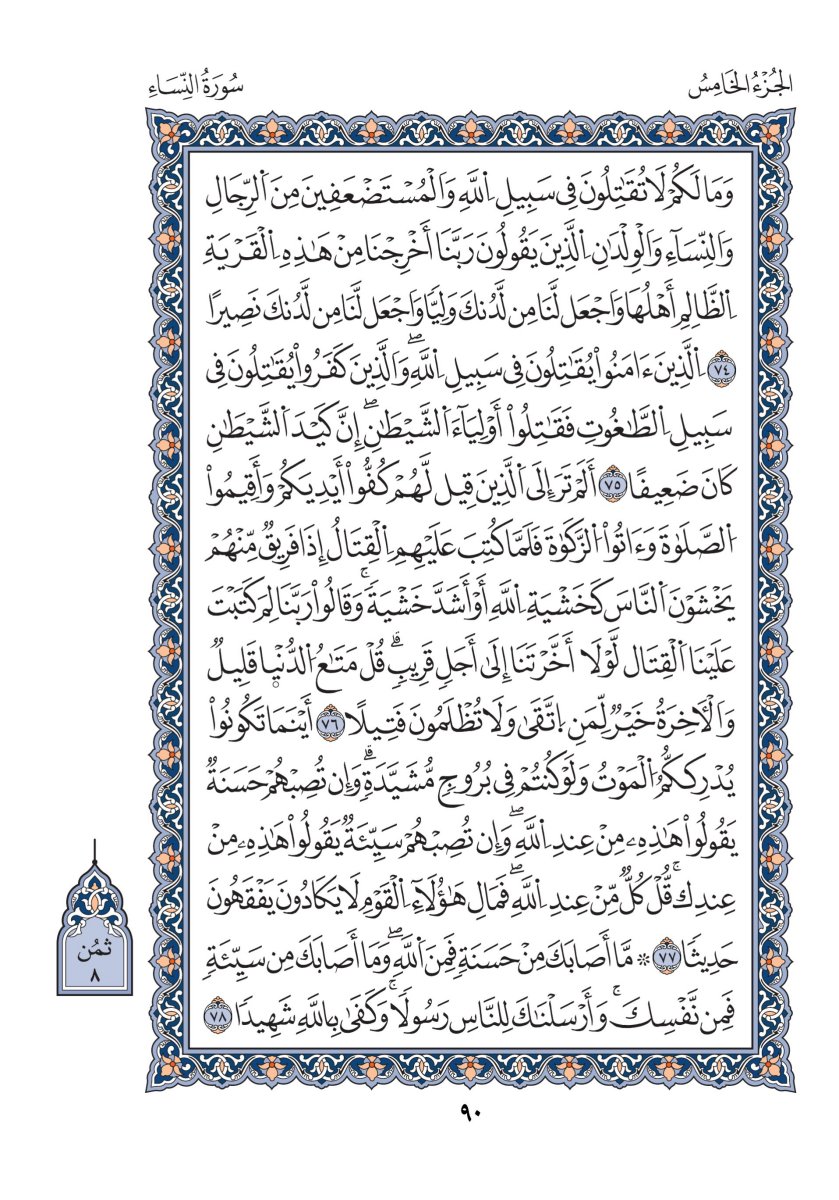 الجُزْءُ الخَامِسُ
سُورَةُ النِّسَاءِ
وَمَا لَكُمْ لَا تُقَٰتِلُونَ فِي سَبِيلِ اِ۬للَّهِ وَالْمُسْتَضْعَفِينَ مِنَ اَ۬لرِّجَالِ
وَالنِّسَآءِ وَالْوِلْدَٰنِ اِ۬لذِينَ يَقُولُونَ رَبَّنَا أَخْرِجْنَا مِنْ هَٰذِهِ اِ۬لْقَرْيَةِ
اِ۬لظَّالِمِ أَهْلُهَا وَاجْعَل لَّنَا مِن لَّدُنكَ وَلِيّٗا وَاجْعَل لَّنَا مِن لَّدُنكَ نَصِيرًا
٧٤ اَ۬لذِينَ ءَامَنُواْ يُقَٰتِلُونَ فِي سَبِيلِ اِ۬للَّهِۖ وَالذِينَ كَفَرُواْ يُقَٰتِلُونَ فِي
سَبِيلِ اِ۬لطَّٰغُوتِ فَقَٰتِلُواْ أَوْلِيَآءَ اَ۬لشَّيْطَٰنِۖ إِنَّ كَيْدَ اَ۬لشَّيْطَٰنِ
كَانَ ضَعِيفًا ٧٥ أَلَمْ تَرَ إِلَى اَ۬لذِينَ قِيل لَّهُمْ كُفُّواْ أَيْدِيَكُمْ وَأَقِيمُواْ
اُ۬لصَّلَوٰةَ وَءَاتُواْ اُ۬لزَّكَوٰةَ فَلَمَّا كُتِبَ عَلَيْهِمِ اِ۬لْقِتَالُ إِذَا فَرِيقٌ مِّنْهُمْ
يَخْشَوْنَ اَ۬لنَّاسَ كَخَشْيَةِ اِ۬للَّهِ أَوْ أَشَدَّ خَشْيَةًۚ وَقَالُواْ رَبَّنَا لِمَ كَتَبْتَ
عَلَيْنَا اَ۬لْقِتَال لَّوْلَا أَخَّرْتَنَا إِلَىٰ أَجَلٍ قَرِيبٍۗ قُلْ مَتَٰعُ اُ۬لدُّنْيَا قَلِيلٌ
وَالْأٓخِرَةُ خَيْرٌ لِّمَنِ اِ۪تَّقَىٰ وَلَا تُظْلَمُونَ فَتِيلًا ٧٦ أَيْنَمَا تَكُونُواْ
يُدْرِككُّمُ اُ۬لْمَوْتُ وَلَوْ كُنتُمْ فِي بُرُوجٍ مُّشَيَّدَةٍۗ وَإِن تُصِبْهُمْ حَسَنَةٌ
يَقُولُواْ هَٰذِهِۦ مِنْ عِندِ اِ۬للَّهِۖ وَإِن تُصِبْهُمْ سَيِّئَةٌ يَقُولُواْ هَٰذِهِۦ مِنْ
عِندِكَۚ قُلْ كُلٌّ مِّنْ عِندِ اِ۬للَّهِۖ فَمَالِ هَٰٓؤُلَآءِ اِ۬لْقَوْمِ لَا يَكَادُونَ يَفْقَهُونَ
حَدِيثًا ٧٧ ۞ مَّا أَصَابَكَ مِنْ حَسَنَةٍ فَمِنَ اَ۬للَّهِۖ وَمَا أَصَابَكَ مِن سَيِّئَةٍ
فَمِن نَّفْسِكَۚ وَأَرْسَلْنَٰكَ لِلنَّاسِ رَسُولًاۚ وَكَفَىٰ بِاللَّهِ شَهِيدًا ٧٨
ثُمُن
٨
٩٠